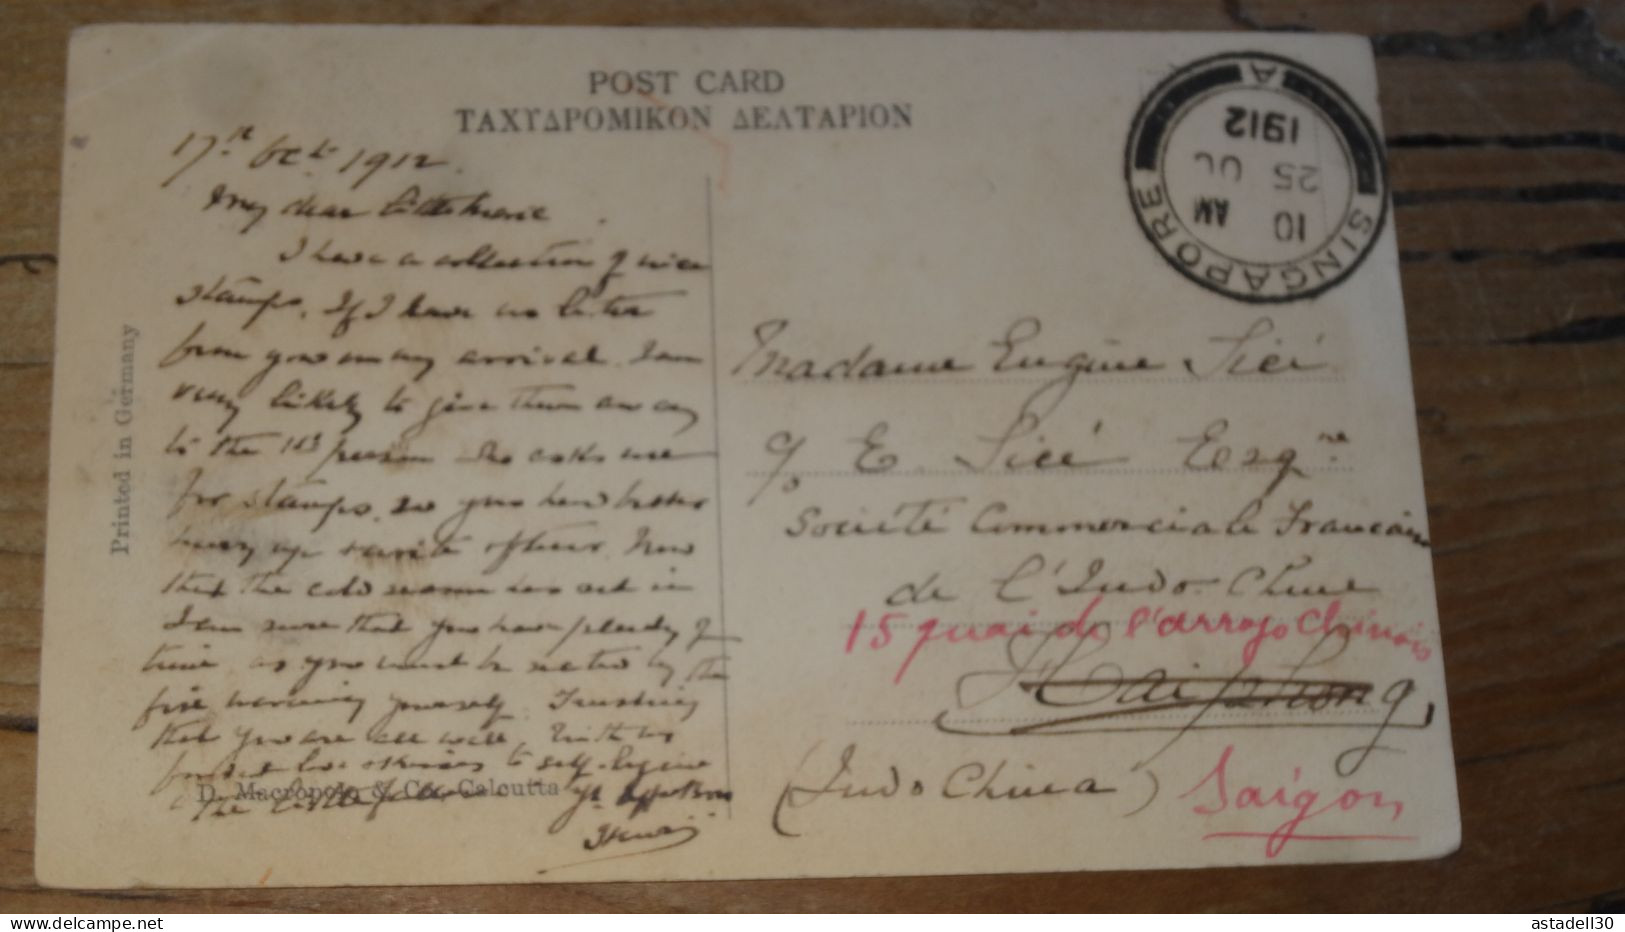 POST CARD
ΤΑΧΥΔΡΟΜΙΚΟΝ ΔΕΛΤΑΡΙΟΝ
SINGAPORE
A
10 AM
25 OC
1912
17th Oct. 1912.
My dear
I have a collection of nice
stamps. If I have no letter
from you on my arrival I am
very likely to give them away
to the 1st person who asks me
for stamps, so you had better
hurry up & write often. Now
that the cold season has set in
I am sure that you have plenty of
time, as you must be seated by the
fire warming yourself. Trusting
that you are all well. With my
fondest love & kisses to self, Eugène
& the little
Henri
Printed in Germany
D. Macropolo & Co., Calcutta
Madame Eugène Sicé
c/o E. Sicé Esqre
Société Commerciale Francaise
de l'Indo-Chine
15 quai de l'arroyo Chinois
Haiphong
(Indo China)
Saïgon
astadell30